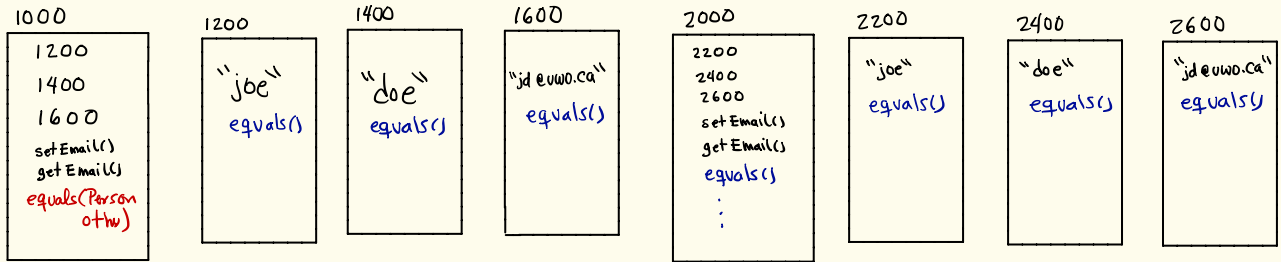 1000
1200
1400
1600
setEmail()
getEmail()
equals(Person
othr)
1200
"joe"
equals()
1400
"doe"
equals()
1600
"jd@uwo.ca"
equals()
2000
2200
2400
2600
setEmail()
getEmail()
equals()
2200
"joe"
equals()
2400
"doe"
equals()
2600
"jd@uwo.ca"
equals()